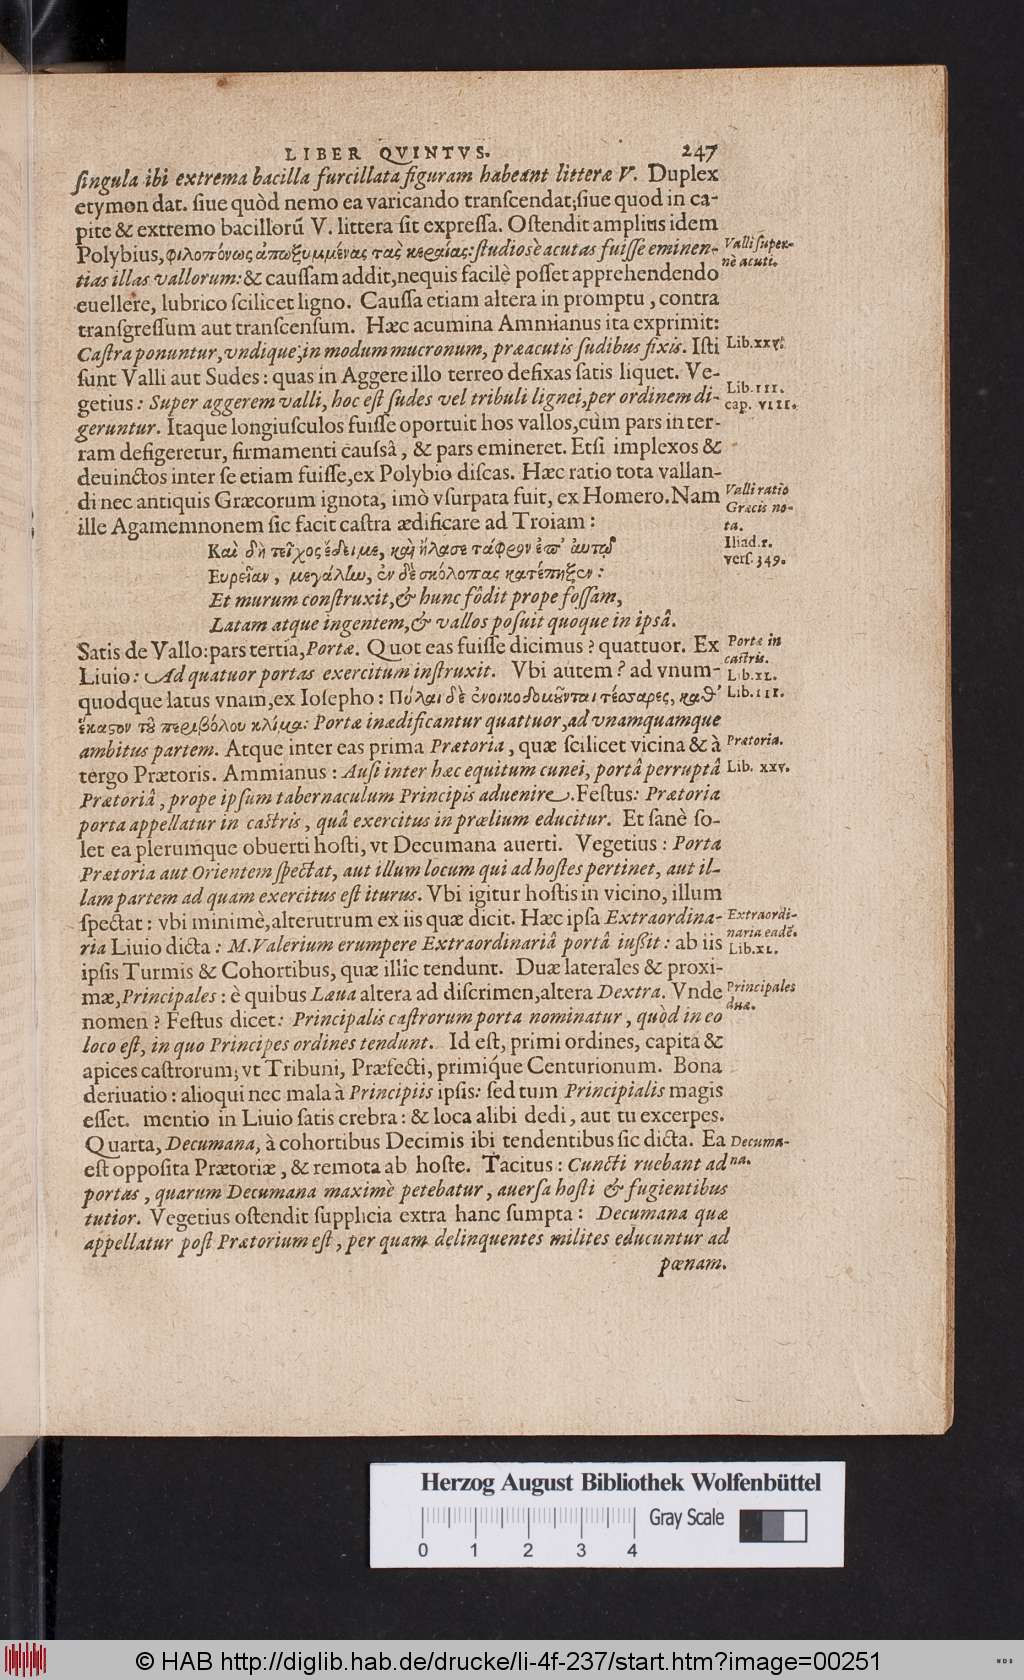 LIBER QVINTVS. 247
ſingula ibi extrema bacilla furcillata figuram habeant litteræ V. Duplex
etymon dat. ſiue quòd nemo ea varicando tranſcendat; ſiue quod in ca-
pite & extremo bacillorũ V. littera ſit expreſſa. Oſtendit amplius idem
Polybius, φιλοπόνως ἀπωξυμμένας τὰς κεραίας: ſtudiosè acutas fuiſſe eminen-
tias illas vallorum: & cauſſam addit, nequis facilè poſſet apprehendendo
euellere, lubrico ſcilicet ligno. Cauſſa etiam altera in promptu, contra
tranſgreſſum aut tranſcenſum. Hæc acumina Ammianus ita exprimit:
Caſtra ponuntur, vndique, in modum mucronum, præacutis ſudibus fixis. Iſti
ſunt Valli aut Sudes: quas in Aggere illo terreo defixas ſatis liquet. Ve-
getius: Super aggerem valli, hoc eſt ſudes vel tribuli lignei, per ordinem di-
geruntur. Itaque longiuſculos fuiſſe oportuit hos vallos, cùm pars in ter-
ram defigeretur, firmamenti cauſsâ, & pars emineret. Etſi implexos &
deuinctos inter ſe etiam fuiſſe, ex Polybio diſcas. Hæc ratio tota vallan-
di nec antiquis Græcorum ignota, imò vſurpata fuit, ex Homero. Nam
ille Agamemnonem ſic facit caſtra ædificare ad Troiam:
Καὶ δὴ τεῖχος ἔδειμε, καὶ ἤλασε τάφρον ἐπ' αὐτῷ
Εὐρεῖαν, μεγάλην, ἐν δὲ σκόλοπας κατέπηξεν:
Et murum conſtruxit, & hunc fôdit prope foſſam,
Latam atque ingentem, & vallos poſuit quoque in ipsâ.
Satis de Vallo: pars tertia, Portæ. Quot eas fuiſſe dicimus? quattuor. Ex
Liuio: Ad quatuor portas exercitum inſtruxit. Vbi autem? ad vnum-
quodque latus vnam, ex Ioſepho: Πύλαι δὲ ἐνοικοδομοῦνται τέσσαρες, καθ'
ἕκαστον τοῦ περιβόλου κλίμα: Portæ inædificantur quattuor, ad vnamquamque
ambitus partem. Atque inter eas prima Prætoria, quæ ſcilicet vicina & à
tergo Prætoris. Ammianus: Auſi inter hæc equitum cunei, portâ perruptâ
Prætoriâ, prope ipſum tabernaculum Principis aduenire. Feſtus: Prætoria
porta appellatur in caſtris, quâ exercitus in prælium educitur. Et ſanè ſo-
let ea plerumque obuerti hoſti, vt Decumana auerti. Vegetius: Porta
Prætoria aut Orientem ſpectat, aut illum locum qui ad hoſtes pertinet, aut il-
lam partem ad quam exercitus eſt iturus. Vbi igitur hoſtis in vicino, illum
ſpectat: vbi minimè, alterutrum ex iis quæ dicit. Hæc ipſa Extraordina-
ria Liuio dicta: M. Valerium erumpere Extraordinariâ portâ iußit: ab iis
ipſis Turmis & Cohortibus, quæ illîc tendunt. Duæ laterales & proxi-
mæ, Principales: è quibus Læua altera ad diſcrimen, altera Dextra. Vnde
nomen? Feſtus dicet: Principalis caſtrorum porta nominatur, quòd in eo
loco eſt, in quo Principes ordines tendunt. Id eſt, primi ordines, capita &
apices caſtrorum; vt Tribuni, Præfecti, primíque Centurionum. Bona
deriuatio: alioqui nec mala à Principiis ipſis: ſed tum Principialis magis
eſſet. mentio in Liuio ſatis crebra: & loca alibi dedi, aut tu excerpes.
Quarta, Decumana, à cohortibus Decimis ibi tendentibus ſic dicta. Ea
eſt oppoſita Prætoriæ, & remota ab hoſte. Tacitus: Cuncti ruebant ad
portas, quarum Decumana maximè petebatur, auerſa hoſti & fugientibus
tutior. Vegetius oſtendit ſupplicia extra hanc ſumpta: Decumana quæ
appellatur poſt Prætorium eſt, per quam delinquentes milites educuntur ad
pœnam.
Valli ſuper-
nè acuti.
Lib. xxv.
Lib. III.
cap. VIII.
Valli ratio
Græcis no-
ta.
Iliad.
verſ. 349.
Portæ in
caſtris.
Lib. XL.
Lib. III.
Prætoria.
Lib. xxv.
Extraordi-
naria eadē.
Lib. XL.
Principales
duæ.
Decuma-
na.
Herzog August Bibliothek Wolfenbüttel
Gray Scale
0 1 2 3 4
© HAB http://diglib.hab.de/drucke/li-4f-237/start.htm?image=00251